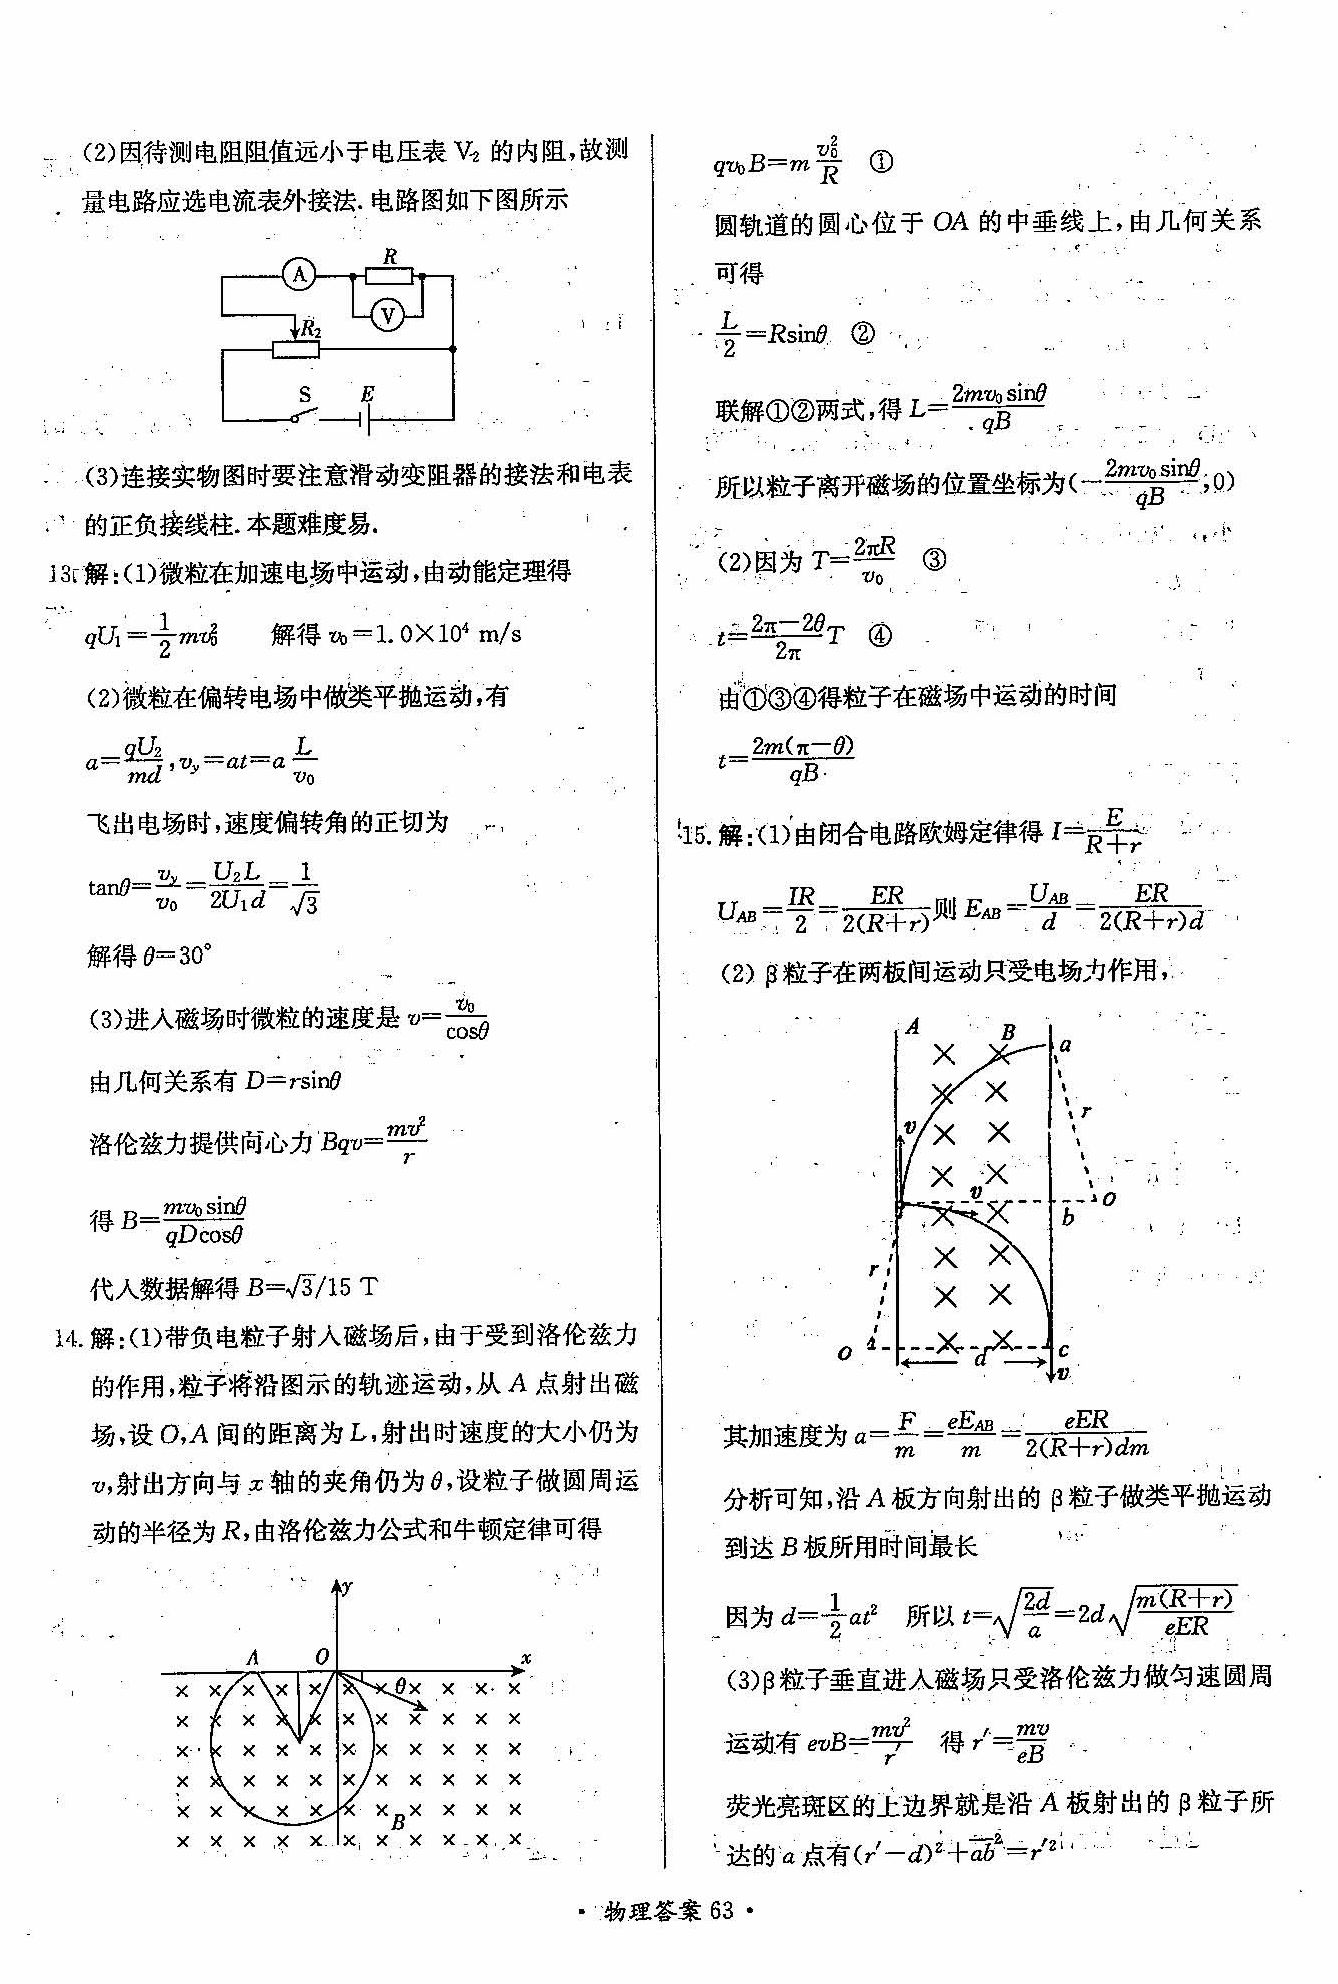 (2)因待测电阻阻值远小于电压表 V₂ 的内阻,故测
量电路应选电流表外接法.电路图如下图所示
A
R
V
R₂
S
E
(3)连接实物图时要注意滑动变阻器的接法和电表
的正负接线柱.本题难度易.
13.解:(1)微粒在加速电场中运动,由动能定理得
qU₁=\frac{1}{2}mv₀² 解得 v₀=1.0×10⁴ m/s
(2)微粒在偏转电场中做类平抛运动,有
a=\frac{qU₂}{md},v_y=at=a\frac{L}{v₀}
飞出电场时,速度偏转角的正切为
tanθ=\frac{v_y}{v₀}=\frac{U₂L}{2U₁d}=\frac{1}{√3}
解得 θ=30°
(3)进入磁场时微粒的速度是 v=\frac{v₀}{cosθ}
由几何关系有 D=rsinθ
洛伦兹力提供向心力 Bqv=\frac{mv²}{r}
得 B=\frac{mv₀sinθ}{qDcosθ}
代人数据解得 B=√3/15 T
14.解:(1)带负电粒子射入磁场后,由于受到洛伦兹力
的作用,粒子将沿图示的轨迹运动,从 A 点射出磁
场,设 O,A 间的距离为 L,射出时速度的大小仍为
v,射出方向与 x 轴的夹角仍为 θ,设粒子做圆周运
动的半径为 R,由洛伦兹力公式和牛顿定律可得
y
A
O
x
θ
B
qv₀B=m\frac{v₀²}{R} ①
圆轨道的圆心位于 OA 的中垂线上,由几何关系
可得
\frac{L}{2}=Rsinθ ②
联解①②两式,得 L=\frac{2mv₀sinθ}{qB}
所以粒子离开磁场的位置坐标为(-\frac{2mv₀sinθ}{qB},0)
(2)因为 T=\frac{2πR}{v₀} ③
t=\frac{2π-2θ}{2π}T ④
由①③④得粒子在磁场中运动的时间
t=\frac{2m(π-θ)}{qB}
15.解:(1)由闭合电路欧姆定律得 I=\frac{E}{R+r}
U_{AB}=\frac{IR}{2}=\frac{ER}{2(R+r)}则 E_{AB}=\frac{U_{AB}}{d}=\frac{ER}{2(R+r)d}
(2)β粒子在两板间运动只受电场力作用,
A
B
a
r
v
v
b
O
r
O
d
c
v
其加速度为 a=\frac{F}{m}=\frac{eE_{AB}}{m}=\frac{eER}{2(R+r)dm}
分析可知,沿 A 板方向射出的 β粒子做类平抛运动
到达 B 板所用时间最长
因为 d=\frac{1}{2}at² 所以 t=\sqrt{\frac{2d}{a}}=2d\sqrt{\frac{m(R+r)}{eER}}
(3)β粒子垂直进入磁场只受洛伦兹力做匀速圆周
运动有 evB=\frac{mv²}{r′} 得 r′=\frac{mv}{eB}
荧光亮斑区的上边界就是沿 A 板射出的 β粒子所
达的 a 点有(r′-d)²+\overline{ab}²=r′²
• 物理答案 63 •